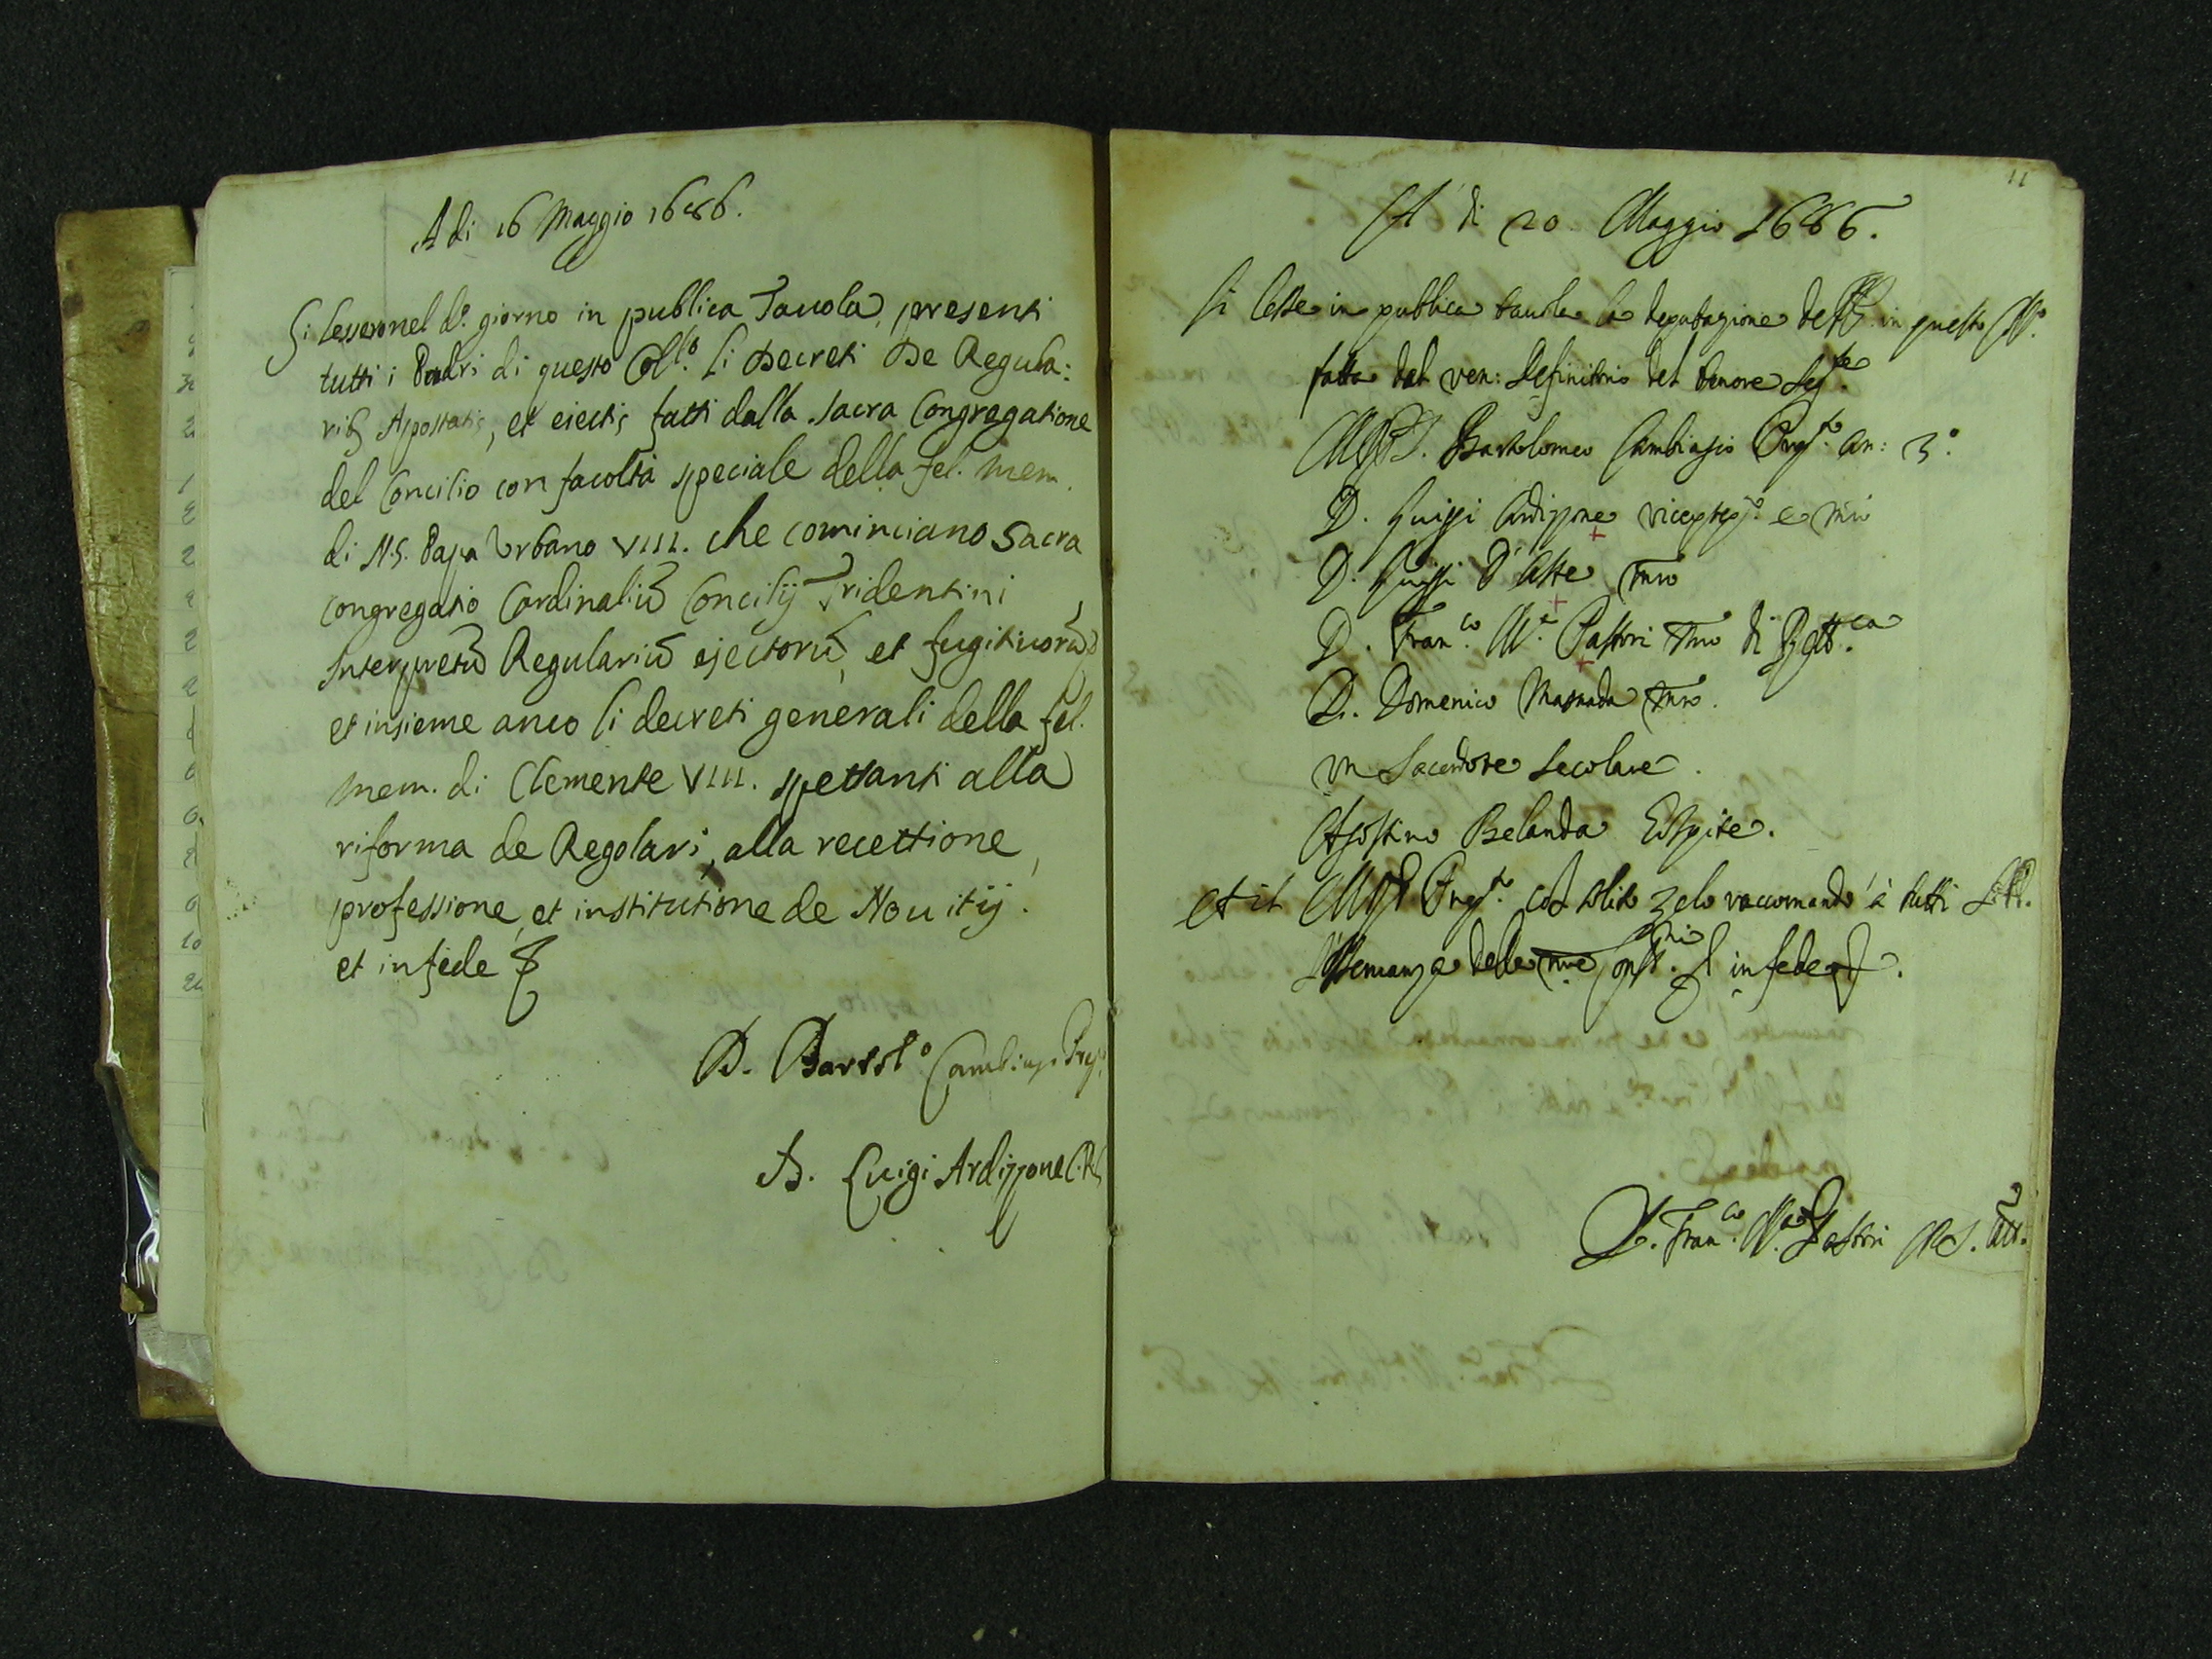 Adi 16 Maggio 1686.
Si lessero nel d.º giorno in publica Tauola, presenti
tutti i Padri di questo Coll.º li Decreti De Regula:
rib9 Apostatis, et eiectis fatti dalla sacra Congregatione
del Concilio con facoltà speciale della fel. mem.
di N.S. Papa Vrbano VIII. che cominciano Sacra
congregatio Cardinaliū Concilij Tridentini
Interpretū Regulariū ejectorū, et fugitiuorū,
et insieme anco li decreti generali della fel.
mem. di Clemente VIII. spettanti alla
riforma de Regolari, alla recettione,
professione, et institutione de Nouitij.
et in fede
D. Bartol.º Cambiaso Prep.
D. Luigi Ardizzone C.R.S.
11
A' di 20. Maggio 1686.
Si lesse in publica tauola la deputazione de PP. in questo
fatta dal ven: Definitorio del tenore seg.te
M.R.P.D. Bartolomeo Cambiasio Prep.to an: 3º.
D. Luiggi Ardizzone viceprep.to e
D. Luiggi D'Aste
D. Fran.co M.a Pastori di Rett.ca
D. Domenico Masnada
vn Sacerdote secolare.
Agostino Belanda Ospite.
et il M.R.P. Prep.to col solito zelo raccomandò à tutti
l'osseruanza delle Const.ni in fede
D. Fran.co M.a Pastori Att.